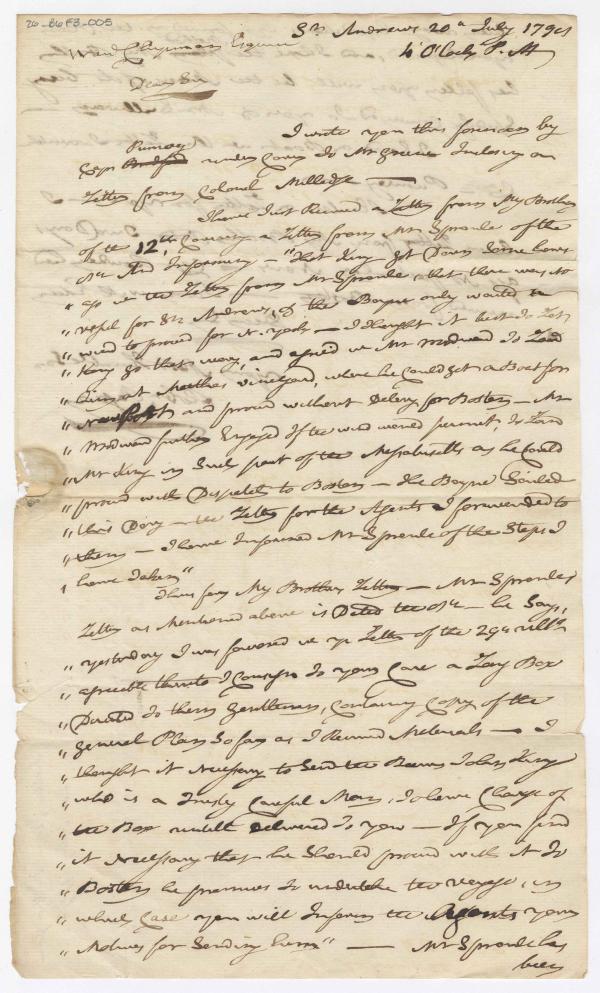 26-B6F3-005
St Andrews 20th July 1798
4 O'Clock P.M
Ward Chipman Esquire
Dear Sir
I wrote you this forenoon by
Pumroy
Capt under Cover to Mr Greene Inclosing a
Letter from Colonel Milledge —
I have Just Received a Letter from My Brother
of the 12th, Covering a Letter from Mr Sproule of the
Informing — "That King got Down some hours
" ago with the Letter from Mr Sproule, that there was no
" vessel for St Andrews, & the Boyne only waited a
" wind to proceed for N. York — I thought it best to Let
" King go that way, and agreed with Mr to Land
" him at Marthas Vineyard, where he could get a Boat for
" and proceed without Delay for Boston — Mr
" further Engaged If the wind would permit, to Land
" Mr King in Such part of the Massachusetts as he Could
" proceed with Dispatch to Boston — the Boyne Sailed
" this Day — the Letter for the Agents I forwarded to
" them — I have Informed Mr Sproule of the Steps I
" have taken"
Thus far My Brothers Letter — Mr Sproules
Letter as Mentioned above is Dated the — he Says,
" yesterday I was favored with yr Letter of the 29th ult.
" agreeable thereto I Consign to your Care a Long Box
" Directed to them Gentlemen, Containing Copy of the
" General Plan So far as I Received Materials — I
" thought it Necessary to Send the Bearer John King
" who is a Trusty Careful Man, to have Charge of
" the Box untill Delivered to you — If you find
" it Necessary that he Should proceed with it to
" Boston he promises to undertake the voyage, in
" which Case you will Inform the Agents your
" Motives for Sending him" — Mr Sproule has
been